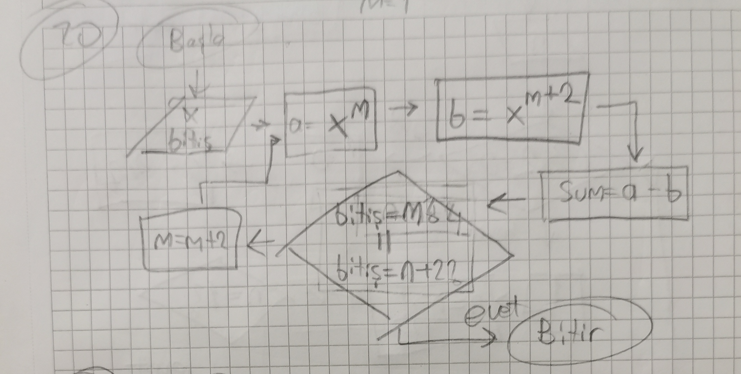 20
Başla
x
bitiş
a = x^M
b = x^{m+2}
Sum = a - b
bitiş = M
||
bitiş = n+2
M = M+2
evet
Bitir